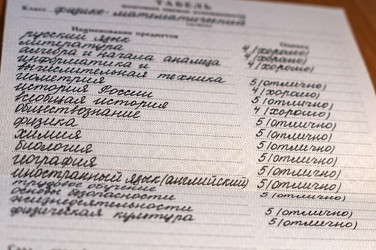 ТАБЕЛЬ
Класс физико-математический
Наименование предметов Оценка
русский язык 4 (хорошо)
литература 4 (хорошо)
алгебра и начала анализа 4 (хорошо)
информатика и
вычислительная техника 5 (отлично)
геометрия 4 (хорошо)
история России 5 (отлично)
всеобщая история 4 (хорошо)
обществознание 5 (отлично)
физика 5 (отлично)
химия 5 (отлично)
биология 5 (отлично)
география 5 (отлично)
иностранный язык (английский) 5 (отлично)
трудовое обучение 5 (отлично)
безопасности
жизнедеятельности 5 (отлично)
физическая культура 5 (отлично)